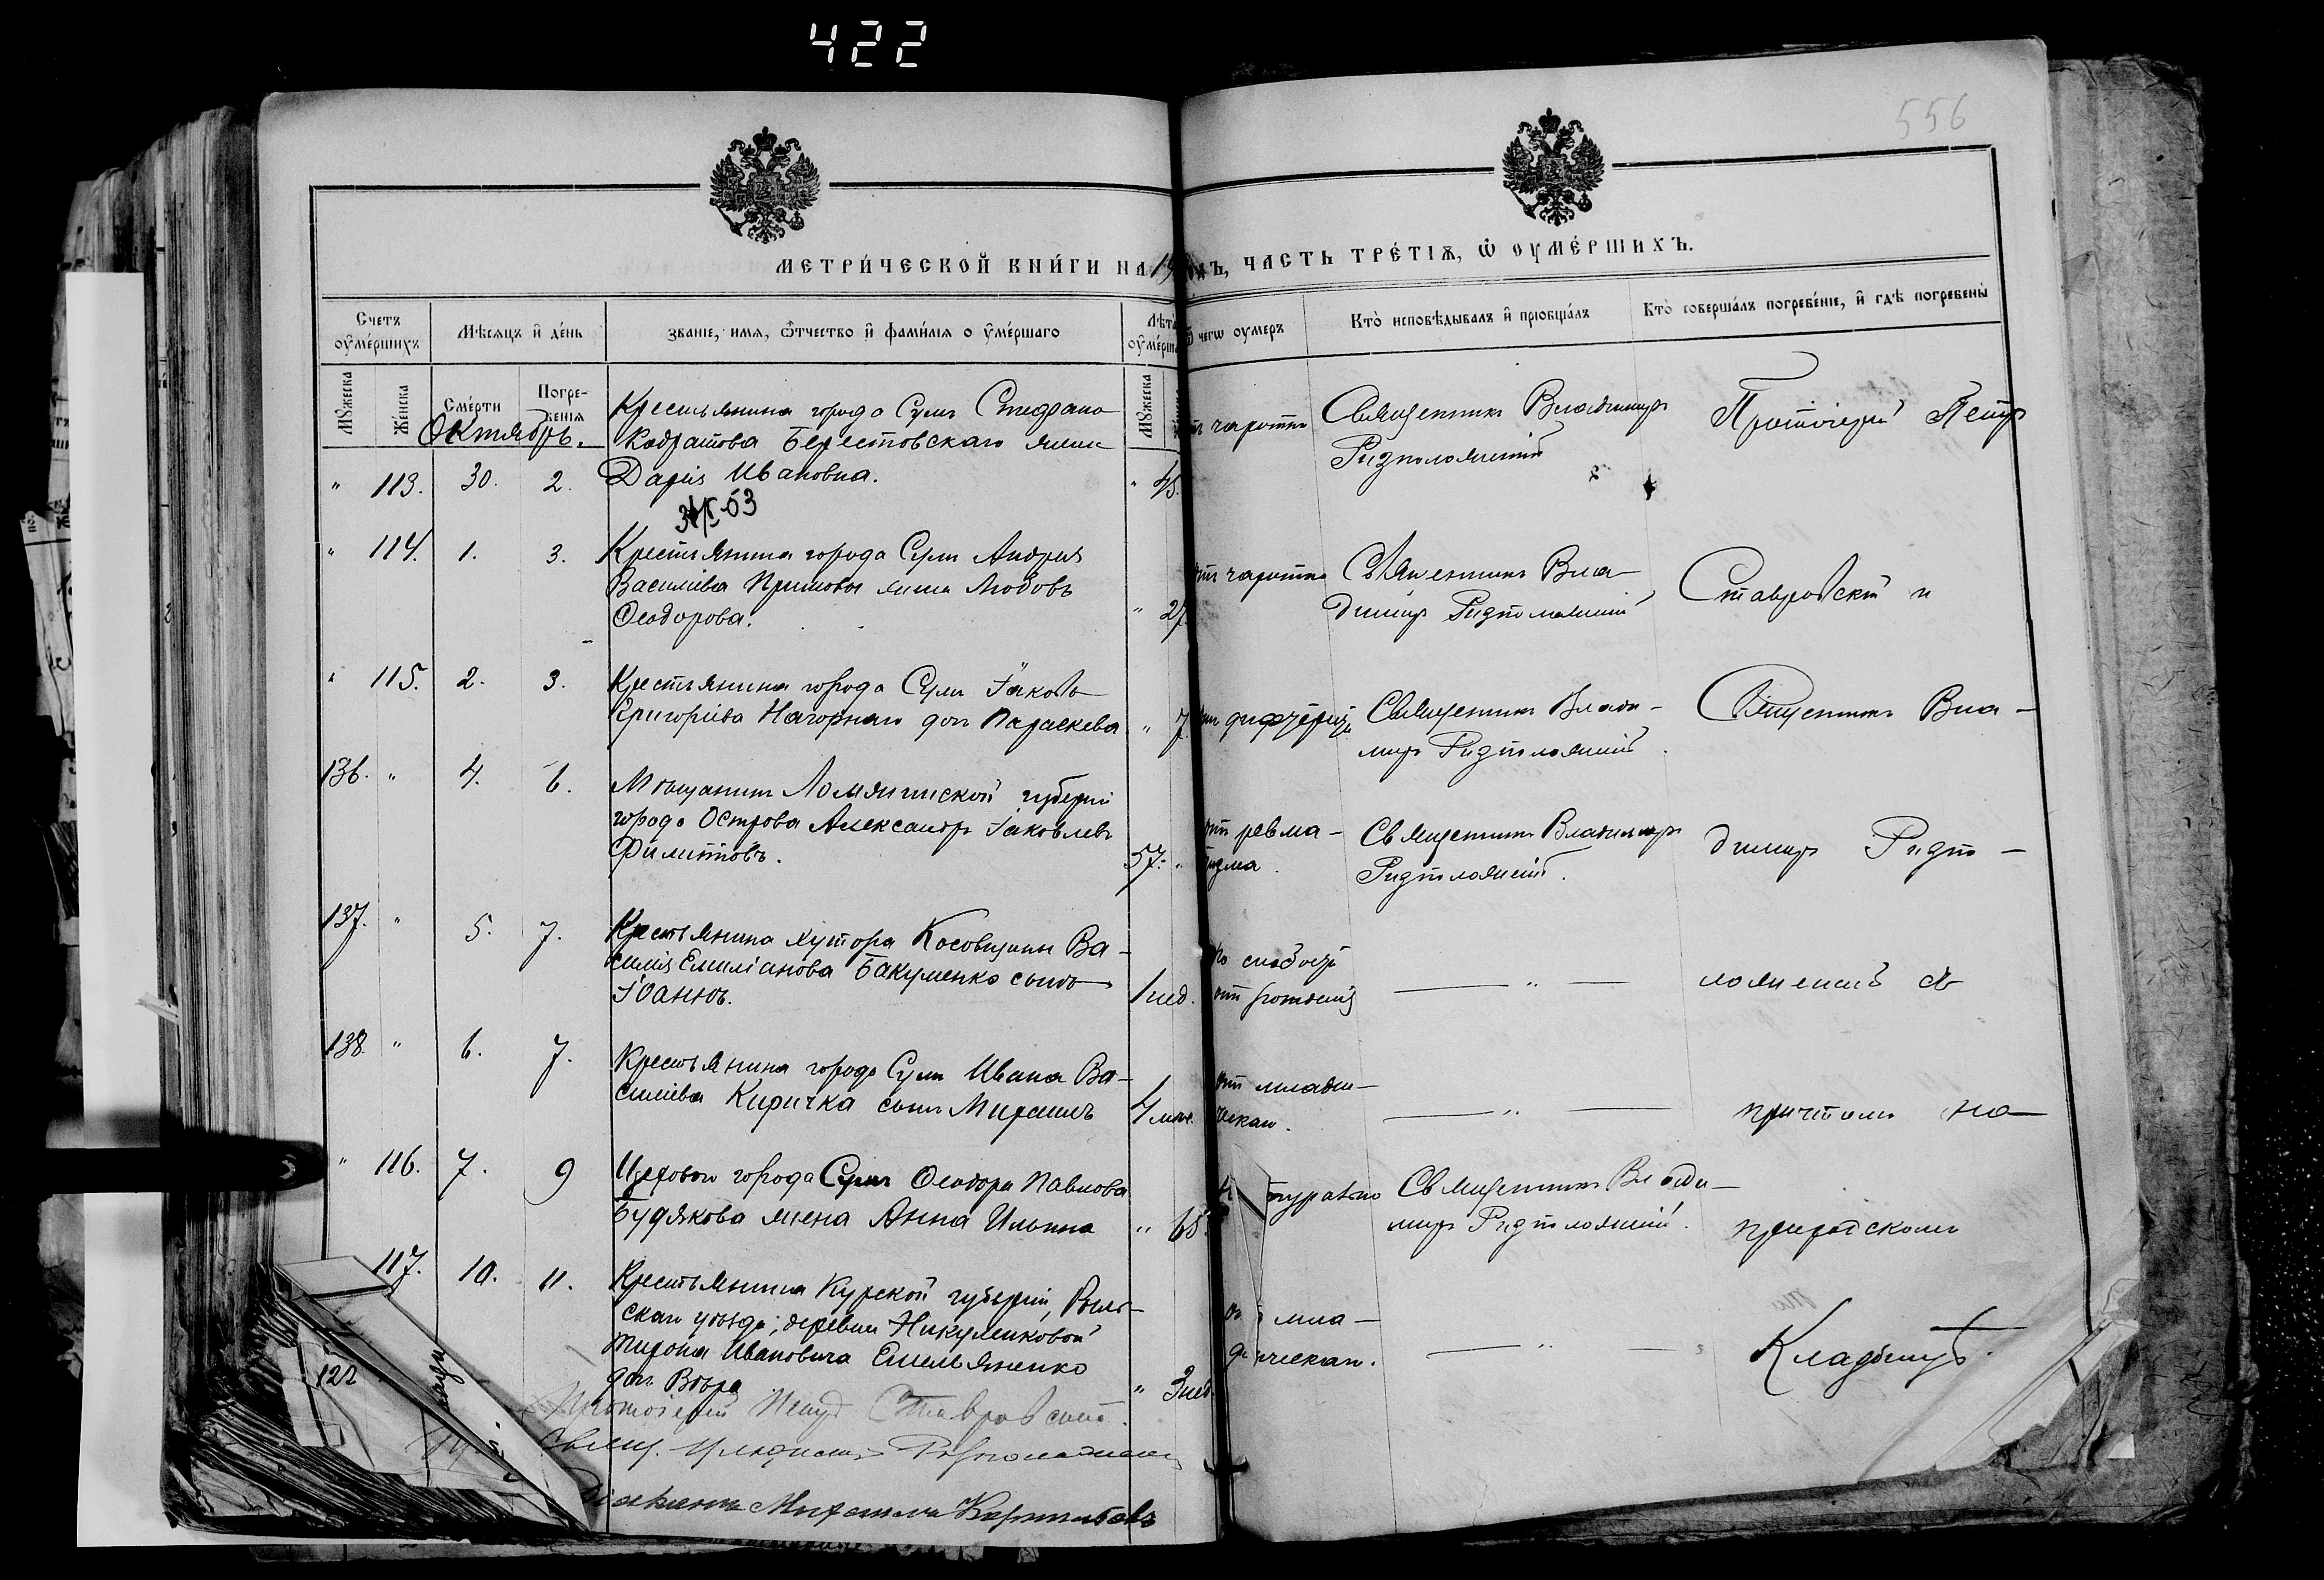 422
556
МЕТРИ́ЧЕСКОЙ КНИ́ГИ НА 19
ДЪ, ЧАСТЬ ТРЕ́ТІѦ, Ѡ҆ ОУМЕ́РШИХЪ.
Счетъ оумершихъ
Мѣсяцъ и день
Званіе, имя, отчество и фамилія оумершаго
Лѣта оумерш
чегѡ оумеръ
Кто исповѣдывалъ и пріобщалъ
Кто совершалъ погребеніе, и гдѣ погребены
Мꙋжеска
Женска
Смерти
Погребенія
Мꙋжеска
Октябрь.
" 113. 30. 2.
Крестьянина города Сумъ Стефана
Кодратова Берестовскаго жена
Дарія Ивановна.
" 45.
чахотки
Священникъ Владиміръ
Ризположенскій
Протоіерей Петръ
" 114. 1. 3.
Крестьянина города Сумъ Андрея
Василіева Примовы жена Любовь
Ѳеодорова.
" 27.
отъ чахотки
Священникъ Вла-
диміръ Ризположенскій
Ставровскій и
" 115. 2. 3.
Крестьянина города Сумъ Іакова
Григоріева Нагорнаго дочь Параскева
" 7.
дифтерій
Священникъ Влади-
міръ Ризположенскій.
Священникъ Вла-
136. " 4. 6.
Мѣщанинъ Ломжинской губерніи
города Острова Александръ Іаковлевъ
Филиповъ.
57. "
отъ ревма-
тизма.
Священникъ Владиміръ
Ризположенскій.
диміръ Ризпо-
137. " 5. 7.
Крестьянина хутора Косовщины Ва-
силія Емиліанова Бакуменко сынъ
Іоаннъ.
1 нед.
слабости
отъ рожденія
— " —
ложенскій съ
138. " 6. 7.
Крестьянина города Сумъ Ивана Ва-
силіева Киричка сынъ Михаилъ
4 мѣс.
отъ младен-
ческаго.
— " —
причтомъ на
" 116. 7. 9
Цеховаго города Сумъ Ѳеодора Павлова
Будякова жена Анна Ильина
" 65.
Священникъ Влади-
міръ Ризположенскій.
приходскомъ
117. 10. 11.
Крестьянина Курской губерніи, Рыль-
скаго уѣзда, деревни Никулинковой
Мирона Ивановича Емельяненко
дочь Вѣра
" 3 нед.
мла-
ческаго.
— " —
Кладбищѣ.
122
Протоіерей Петръ Ставровскій.
Свящ. Владиміръ Ризположенскій
Діаконъ Михаилъ